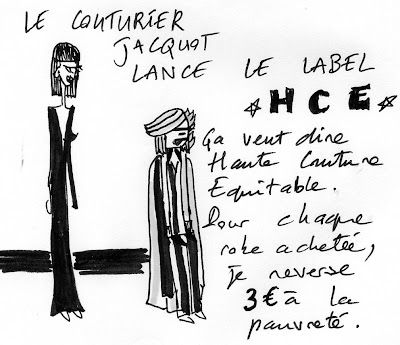 LE COUTURIER
JACQUOT
LANCE LE LABEL
☆ HCE ☆
Ça veut dire
Haute Couture
Equitable.
Pour chaque
robe achetée,
je reverse
3€ à la
pauvreté.